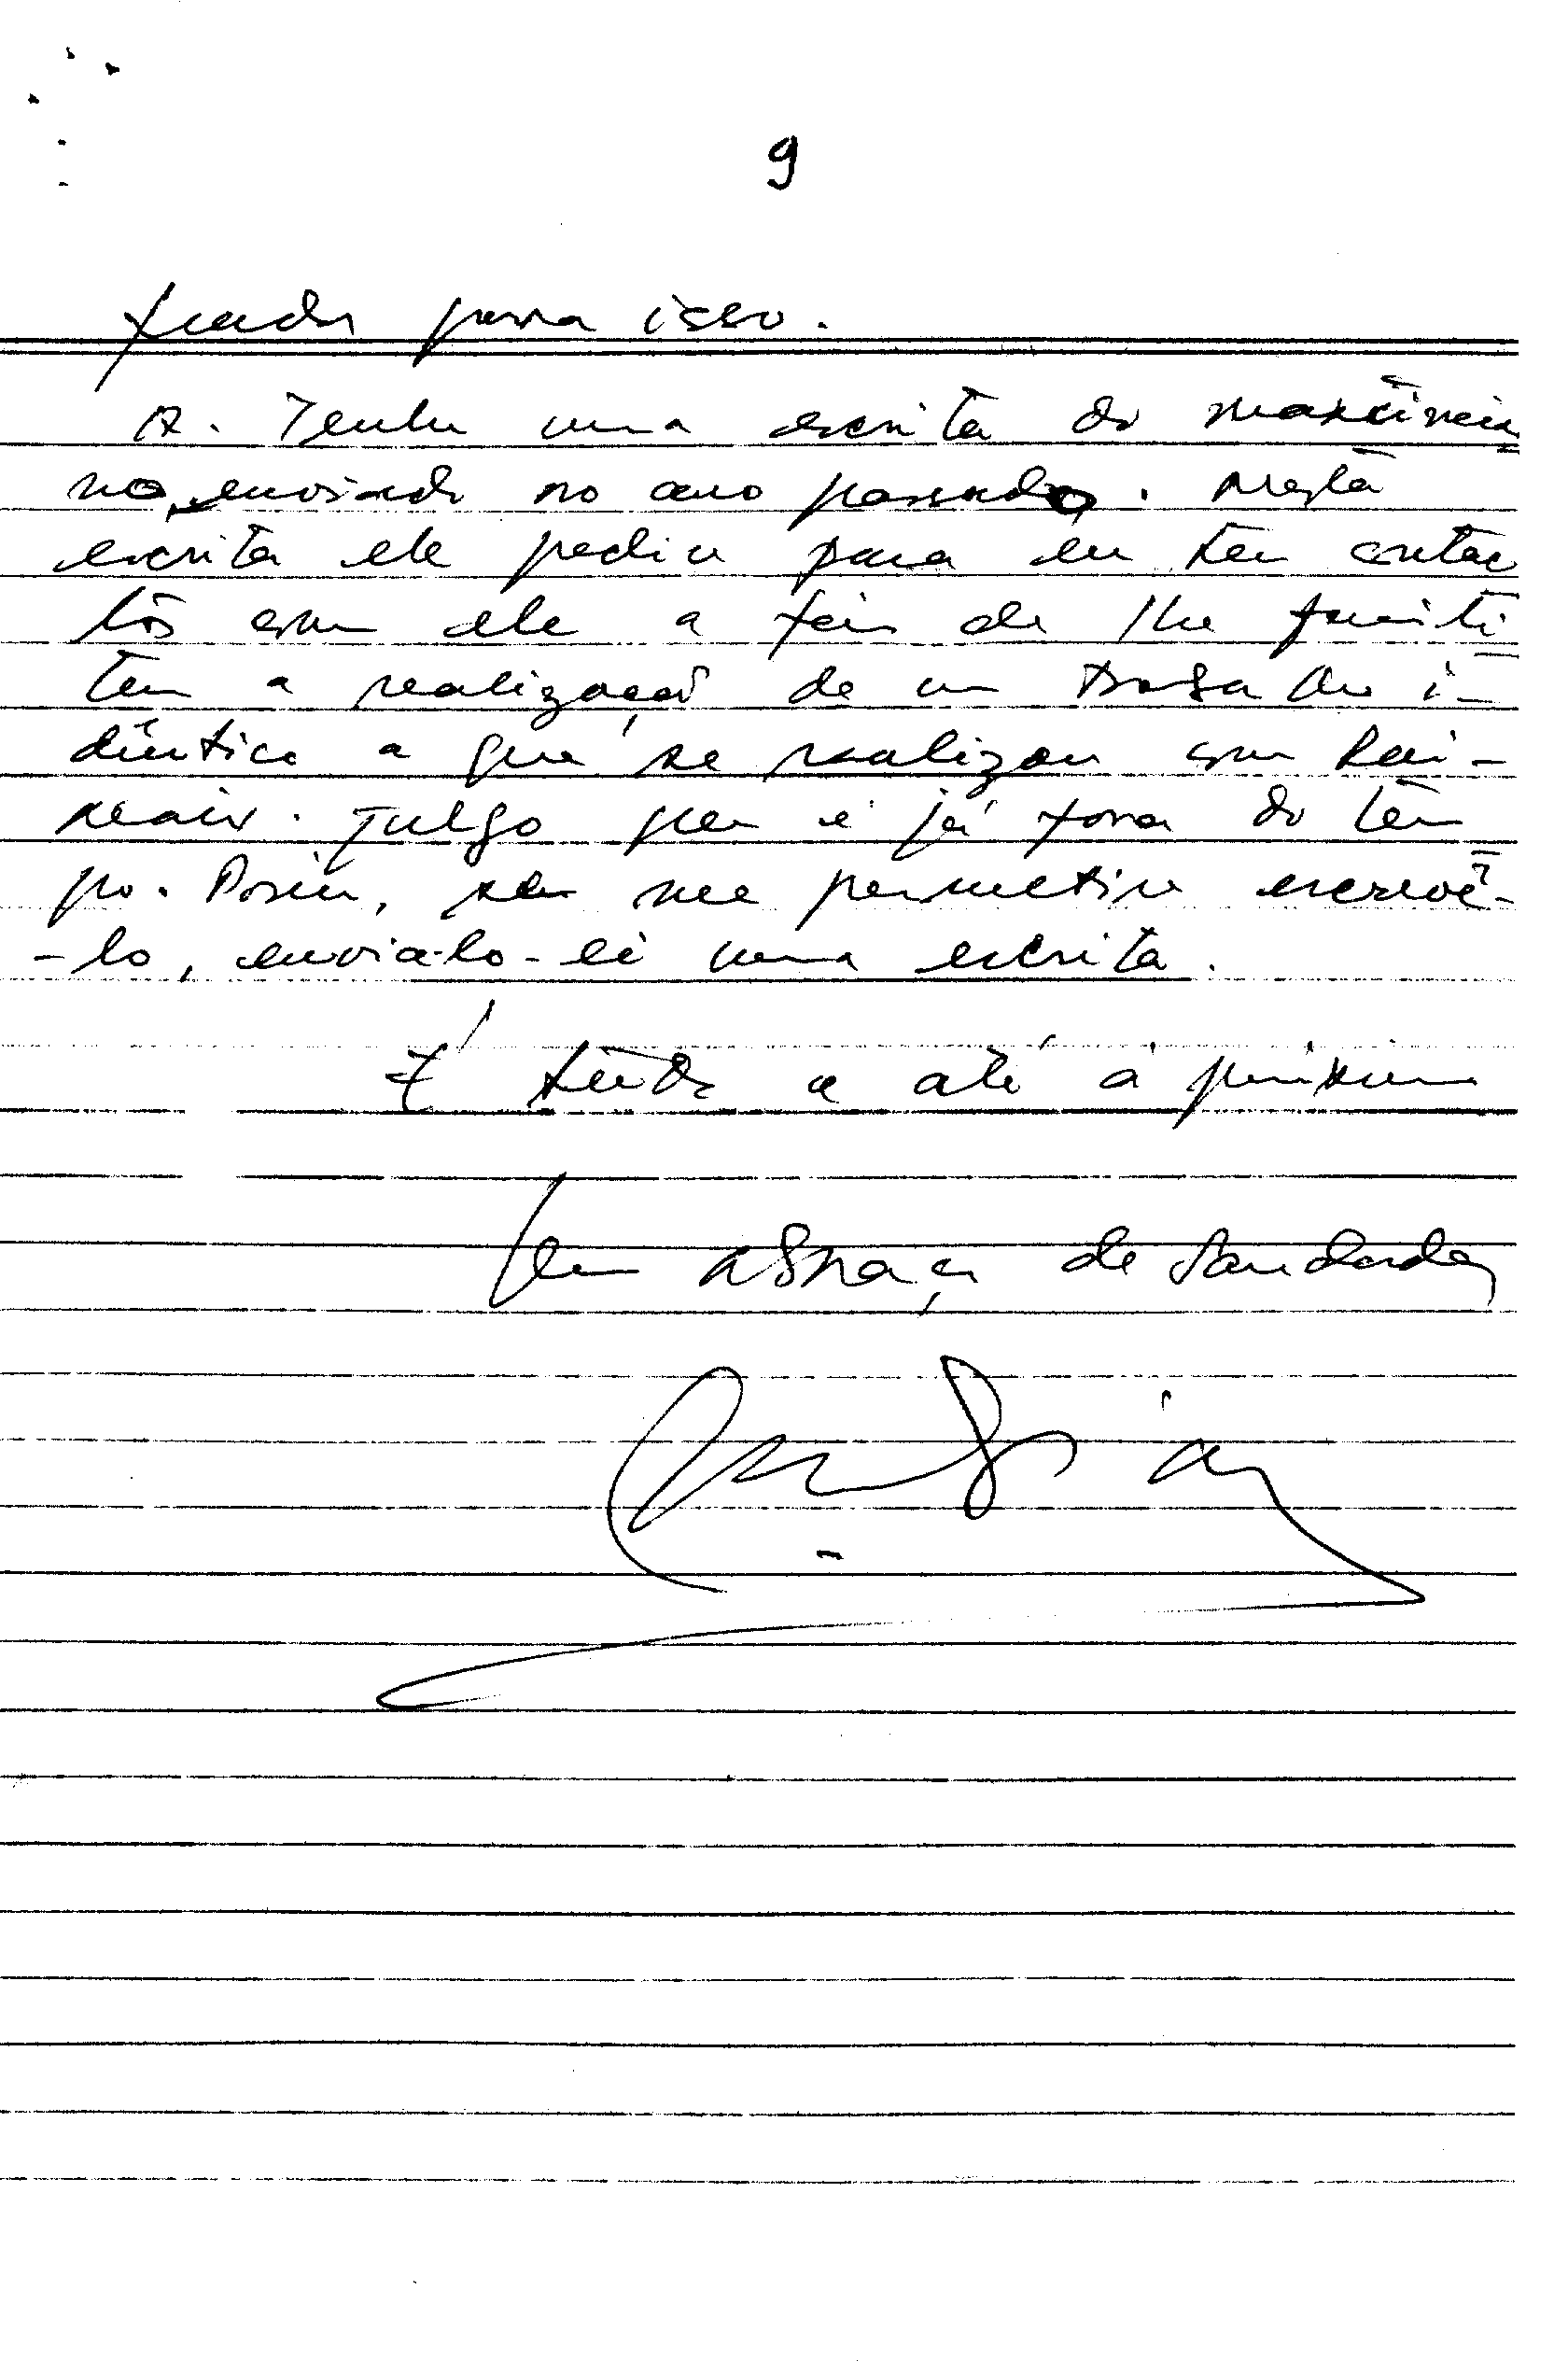 9
para isso.
A. Tenho uma escrita do Maximia
no, enviado no ano passado. Nesta
escrita ele pediu para eu ter contac
tos com ele a fim de lhe
ter a realização de um trabalho i-
dêntico a que se realizou com
Julgo que é já fora do têm
po. Porém, se me permetir escrevê-
-lo, envia-lo-ei uma escrita.
É tudo e até à próxima
Um abraço de saudades